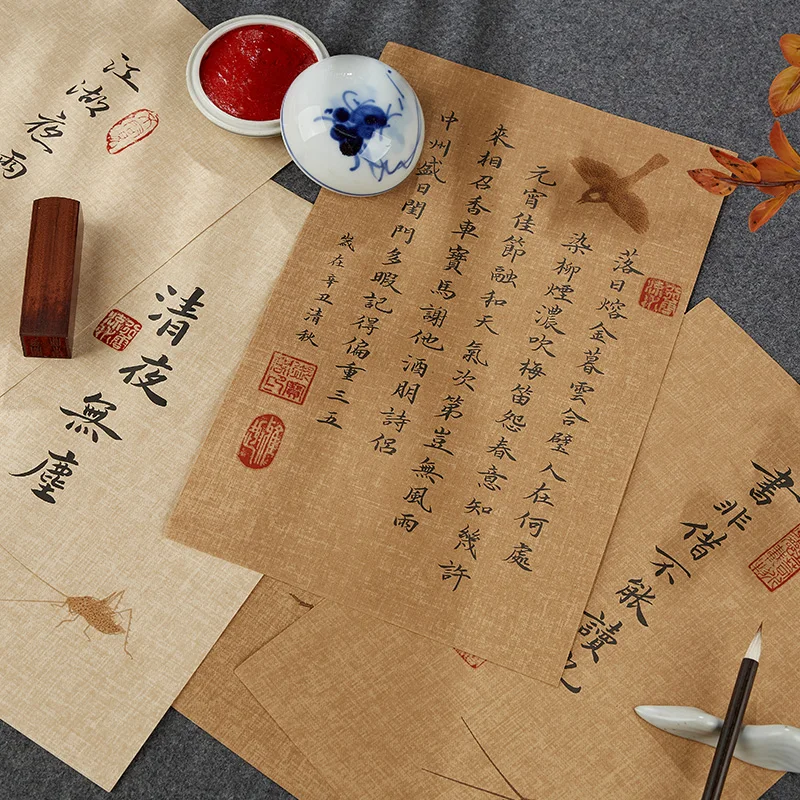 落日熔金暮雲合璧人在何處
染柳煙濃吹梅笛怨春意知幾許
元宵佳節融和天氣次第豈無風雨
來相召香車寶馬謝他酒朋詩侶
中州盛日閨門多暇記得偏重三五
歲在辛丑清秋
江湖夜雨
清夜無塵
書非借不能讀